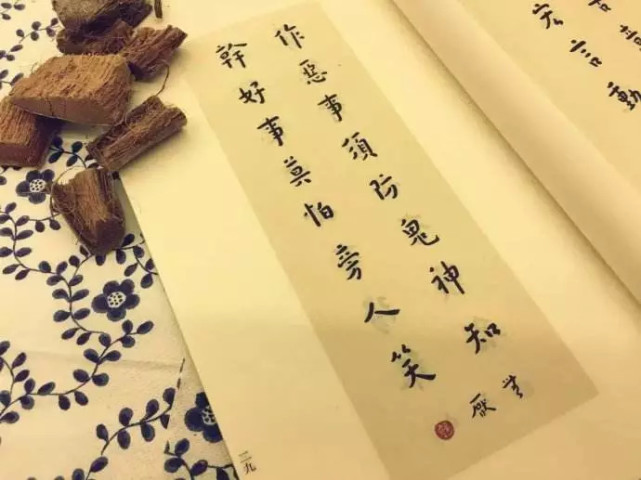 言動
作惡事須防鬼神知
幹好事莫怕旁人笑
二九